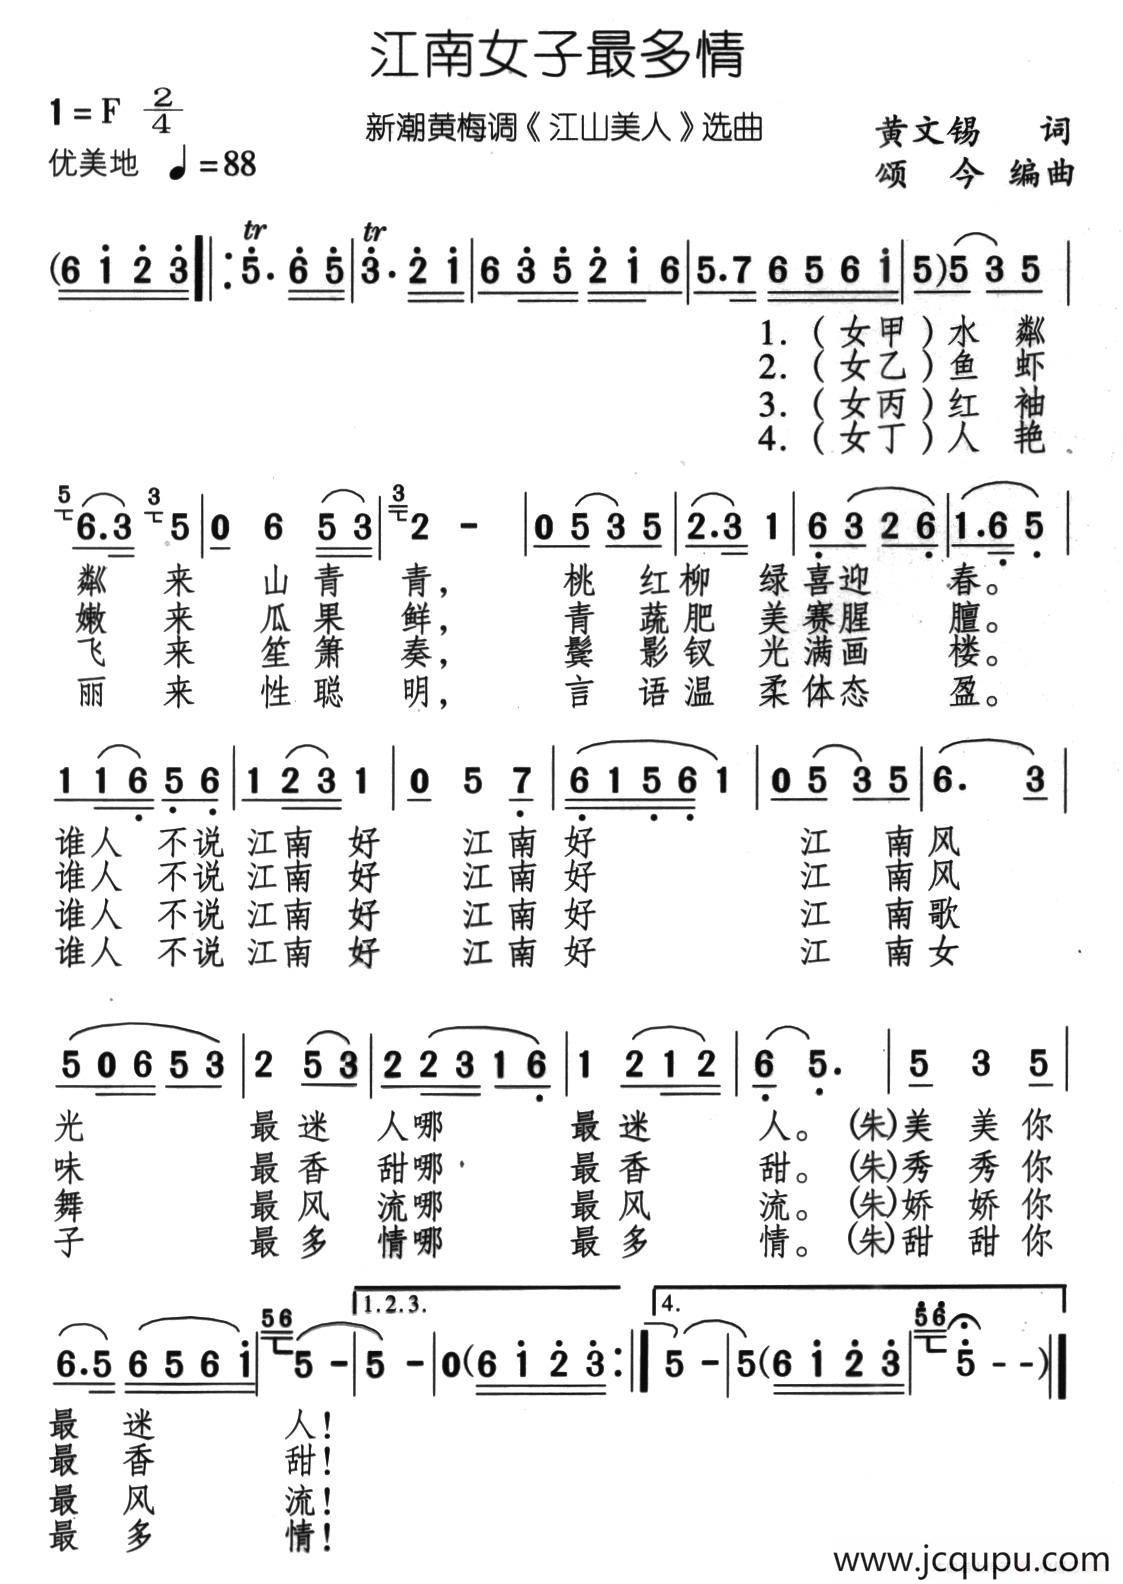 江南女子最多情
1=F 2/4
新潮黄梅调《江山美人》选曲
黄文锡 词
优美地 ♩=88
颂 今 编曲
tr tr
(6 1 2 3 |: 5. 6 5 | 3. 2 1 | 6 3 5 2 1 6 | 5.7 6 5 6 1 | 5)5 3 5 |
1.(女甲)水粼
2.(女乙)鱼虾
3.(女丙)红袖
4.(女丁)人艳
5 3 3
6.3 5 | 0 6 5 3 | 2 - | 0 5 3 5 | 2.3 1 | 6 3 2 6 | 1.6 5 |
粼来山青青,桃红柳绿喜迎春。
嫩来瓜果鲜,青蔬肥美赛腥膻。
飞来笙箫奏,鬓影钗光满画楼。
丽来性聪明,言语温柔体态盈。
1 1 6 5 6 | 1 2 3 1 | 0 5 7 | 6 1 5 6 1 | 0 5 3 5 | 6. 3 |
谁人不说江南好 江南好 江南风
谁人不说江南好 江南好 江南风
谁人不说江南好 江南好 江南歌
谁人不说江南好 江南好 江南女
5 0 6 5 3 | 2 5 3 | 2 2 3 1 6 | 1 2 1 2 | 6 5. | 5 3 5 |
光 最迷人哪 最迷人。(朱)美美你
味 最香甜哪 最香甜。(朱)秀秀你
舞 最风流哪 最风流。(朱)娇娇你
子 最多情哪 最多情。(朱)甜甜你
1.2.3. 4.
56 56
6.5 6 5 6 1 | 5 - | 5 - | 0(6 1 2 3 :| 5 - | 5(6 1 2 3 | 5 - -)||
最迷人!
最香甜!
最风流!
最多情!
www.jcqupu.com